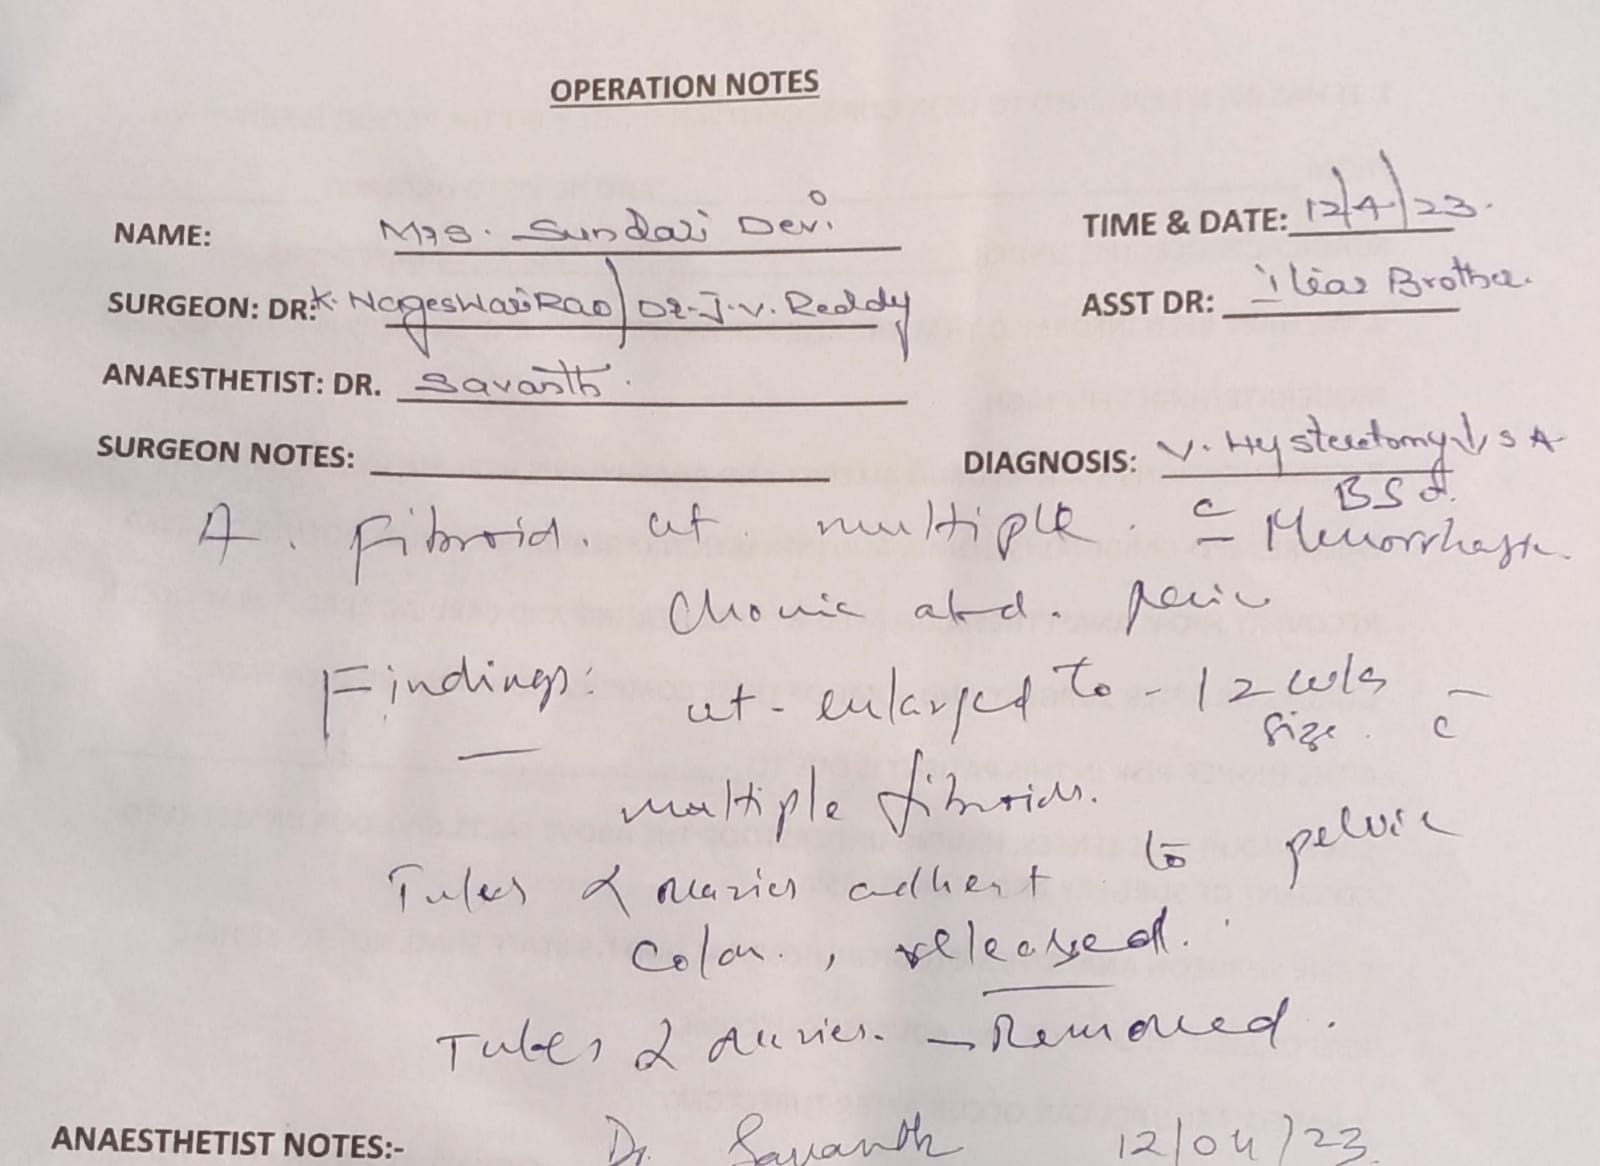 OPERATION NOTES
NAME: Mrs. Sundari Devi. TIME & DATE: 12/4/23.
SURGEON: DR: K. NageswariRao / Dr. J. V. Reddy ASST DR: Brother.
ANAESTHETIST: DR. Savanth.
SURGEON NOTES: DIAGNOSIS: V. Hysterectomy SA
BSO.
Fibroid. ut. multiple. c̄ Menorrhagia.
Chronic abd. pain
Findings:
ut - enlarged to - 12 wks
size. c̄
multiple fibroids.
Tubes & ovaries adherent to pelvic
colon., released.
Tubes & ovaries. - Removed.
ANAESTHETIST NOTES:- Dr. Savanth 12/04/23